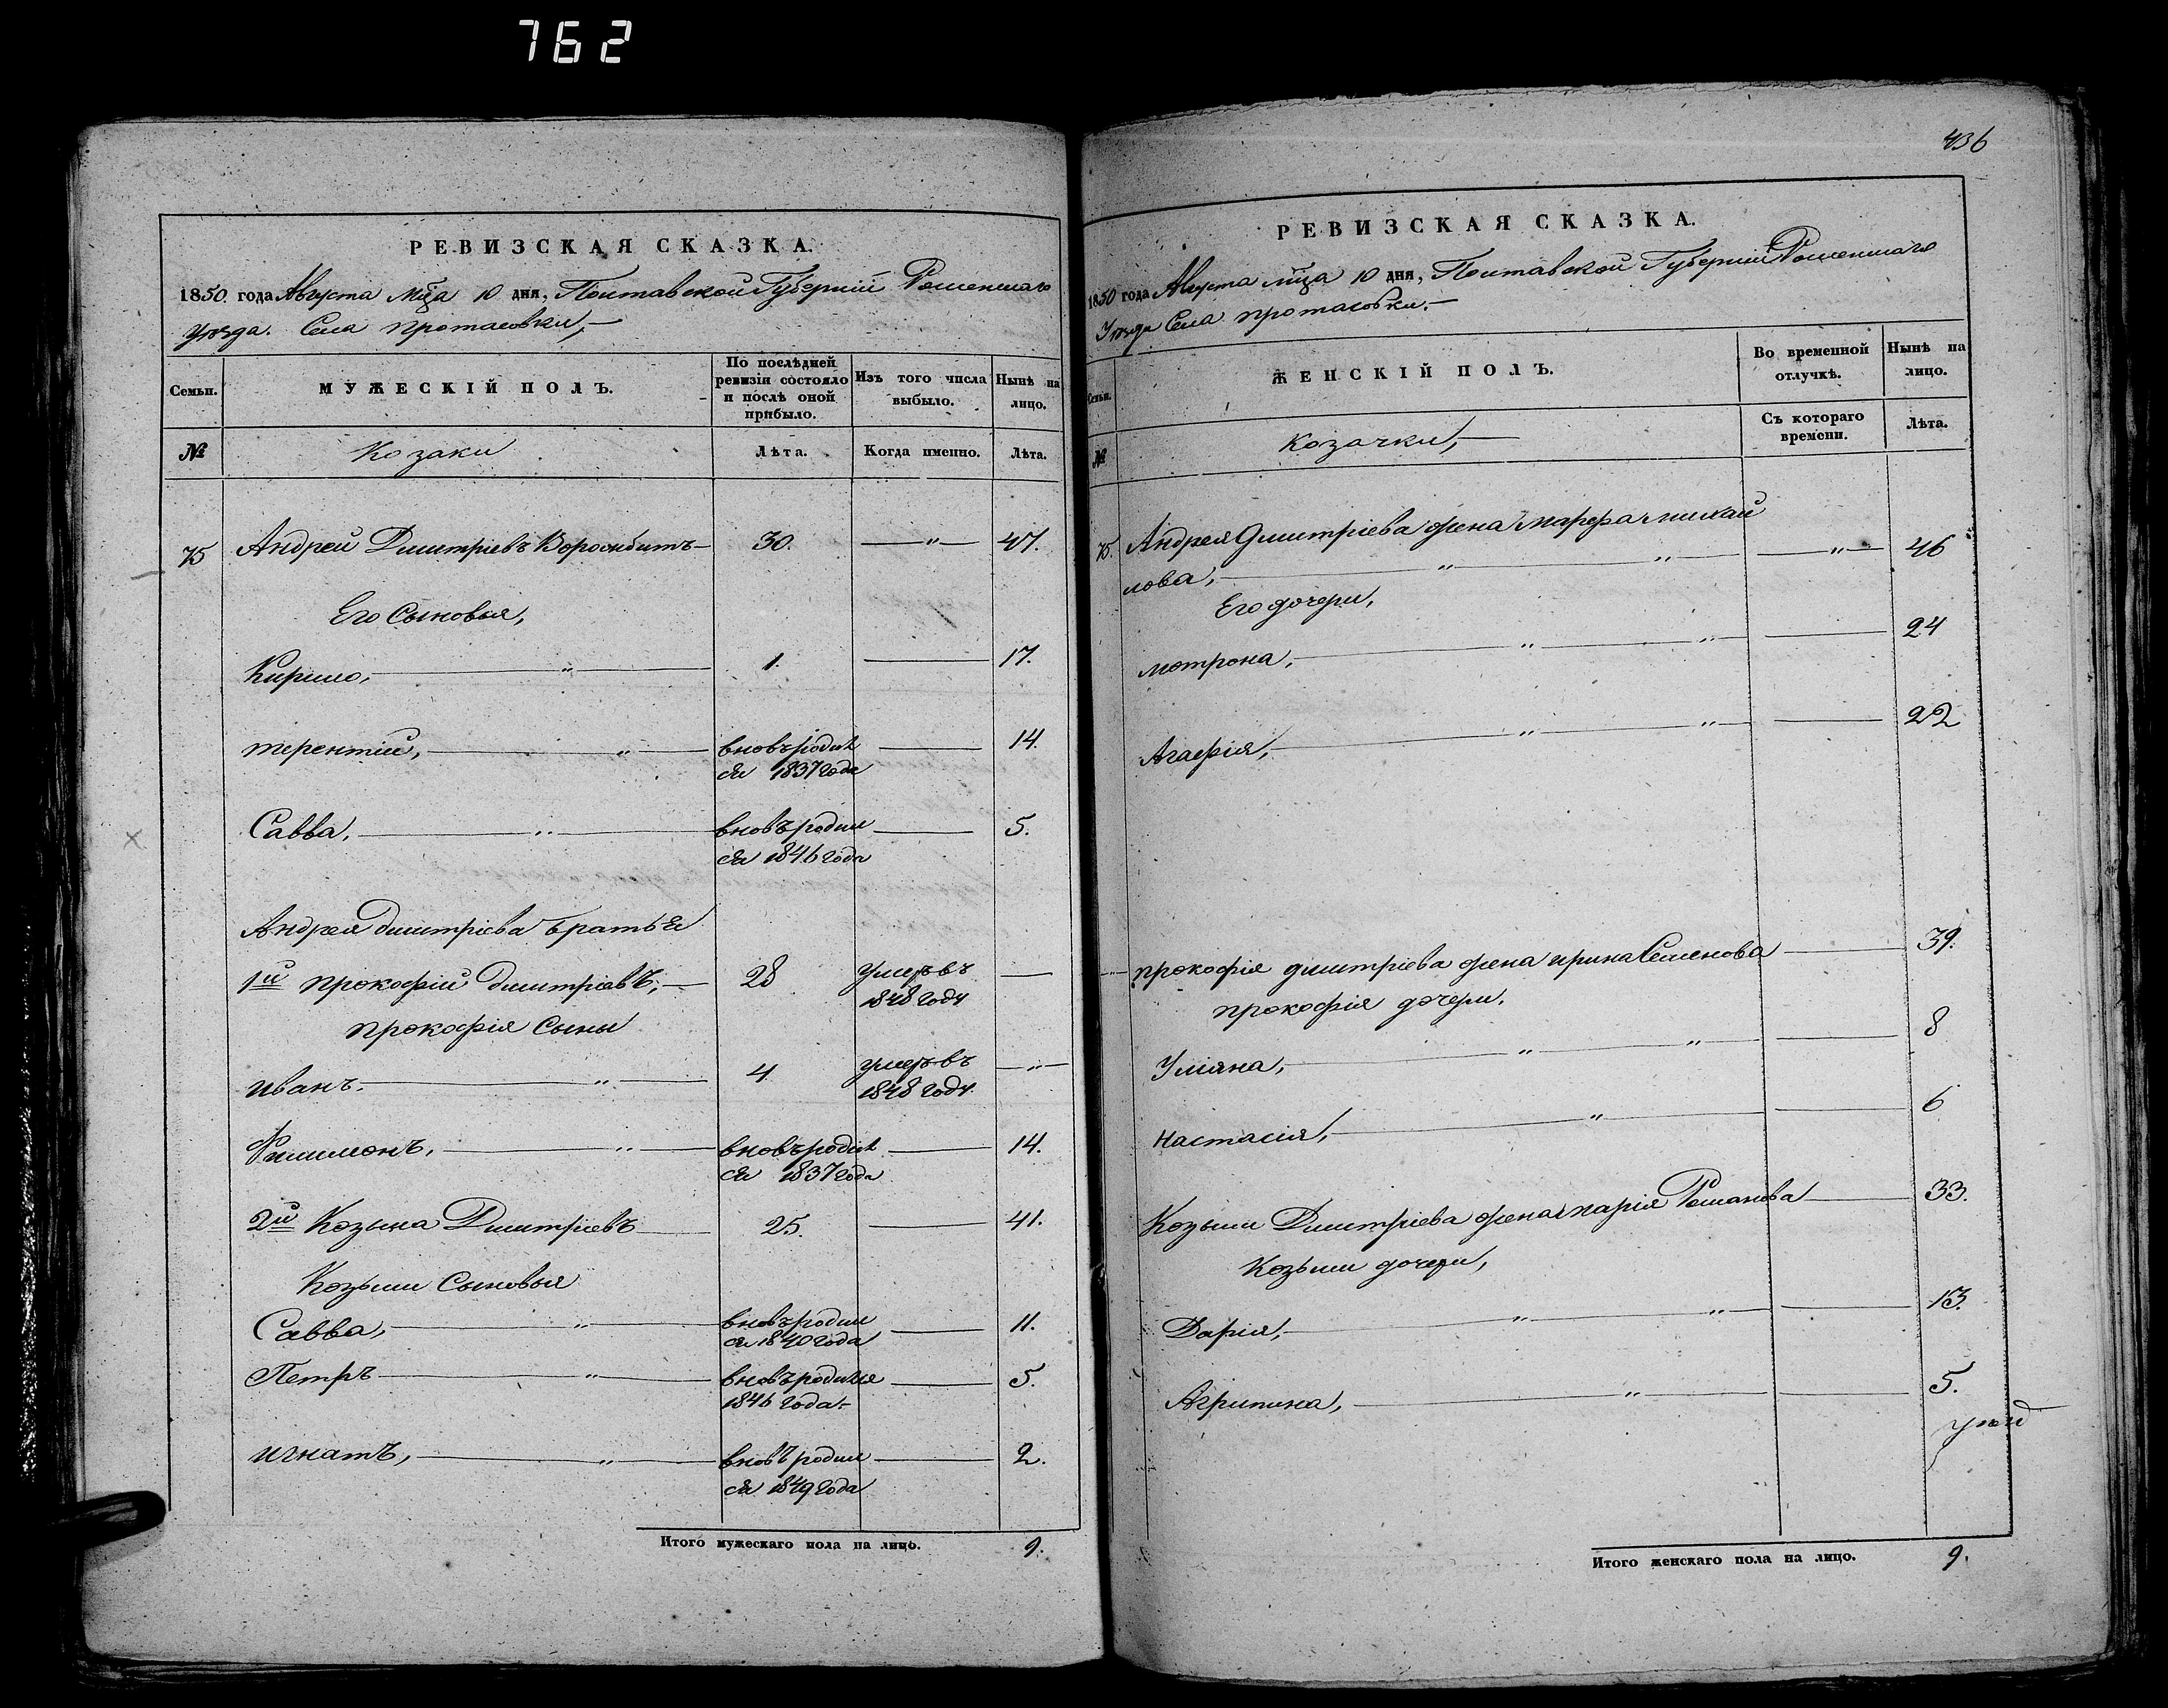 762
РЕВИЗСКАЯ СКАЗКА.
1850 года Августа мца 10 дня, Полтавской Губерній Роменшаго
Уѣзда. Села Протасовки,
Семьи.
МУЖЕСКІЙ ПОЛЪ.
По послѣдней ревизіи состояло и послѣ оной прибыло.
Изъ того числа выбыло.
Нынѣ на лицо.
№
Козаки
Лѣта.
Когда именно.
Лѣта.
75 Андрей Дмитріевъ Воронбитъ 30. — " — 47.
Его Сыновья,
Кирило, " 1. 17.
терентій, " вновъ родил 14.
ся 1837 года
Савва, " вновъ родил 5.
ся 1846 года
Андрея дмитріева братья
1й прокофій дмитріевъ, 28 умеръ въ
1848 году
прокофія Сыны
иванъ. " 4 умеръ въ "
1848 году
Филимонъ, " вновъ родил 14.
ся 1837 года
2й Козьма Дмитріевъ 25. 41.
Козьми Сыновья
Савва, " вновъ родил 11.
ся 1840 года
Петръ " вновъ родился 5.
1846 года.
игнатъ, " вновъ родил 2.
ся 1849 года
Итого мужескаго пола на лицо. 9.
436
РЕВИЗСКАЯ СКАЗКА.
1850 года Августа мца 10 дня, Полтавской Губерній Роменшаго
Уѣзда Села протасовки.
Семьи.
ЖЕНСКІЙ ПОЛЪ.
Во временной отлучкѣ.
Нынѣ на лицо.
№
Козачки,
Съ котораго времени.
Лѣта.
75. Андрея Дмитріева жена марефа михай
лова, " " " 46
Его дочери,
мотрона, " " 24
Агафія, " " 22
прокофія дмитріева жена ирина Семенова 39.
прокофія дочери.
Уляна, " " 8
настасія, " 6
Козьми Дмитріева жена марія Романова 33.
Козьми дочери,
Дарія, " " 13.
Агрипина, " 5.
Итого женскаго пола на лицо. 9.